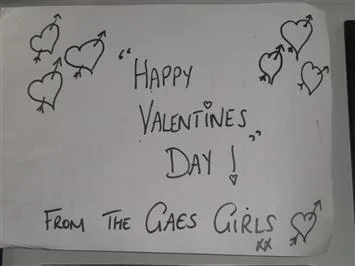 "HAPPY
VALENTINES
DAY!"
FROM THE GAES GIRLS
xx